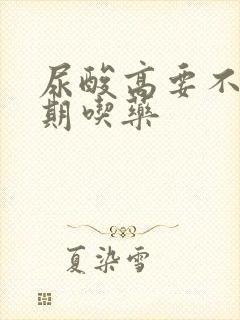 尿酸高要不
期喫藥
夏染雪